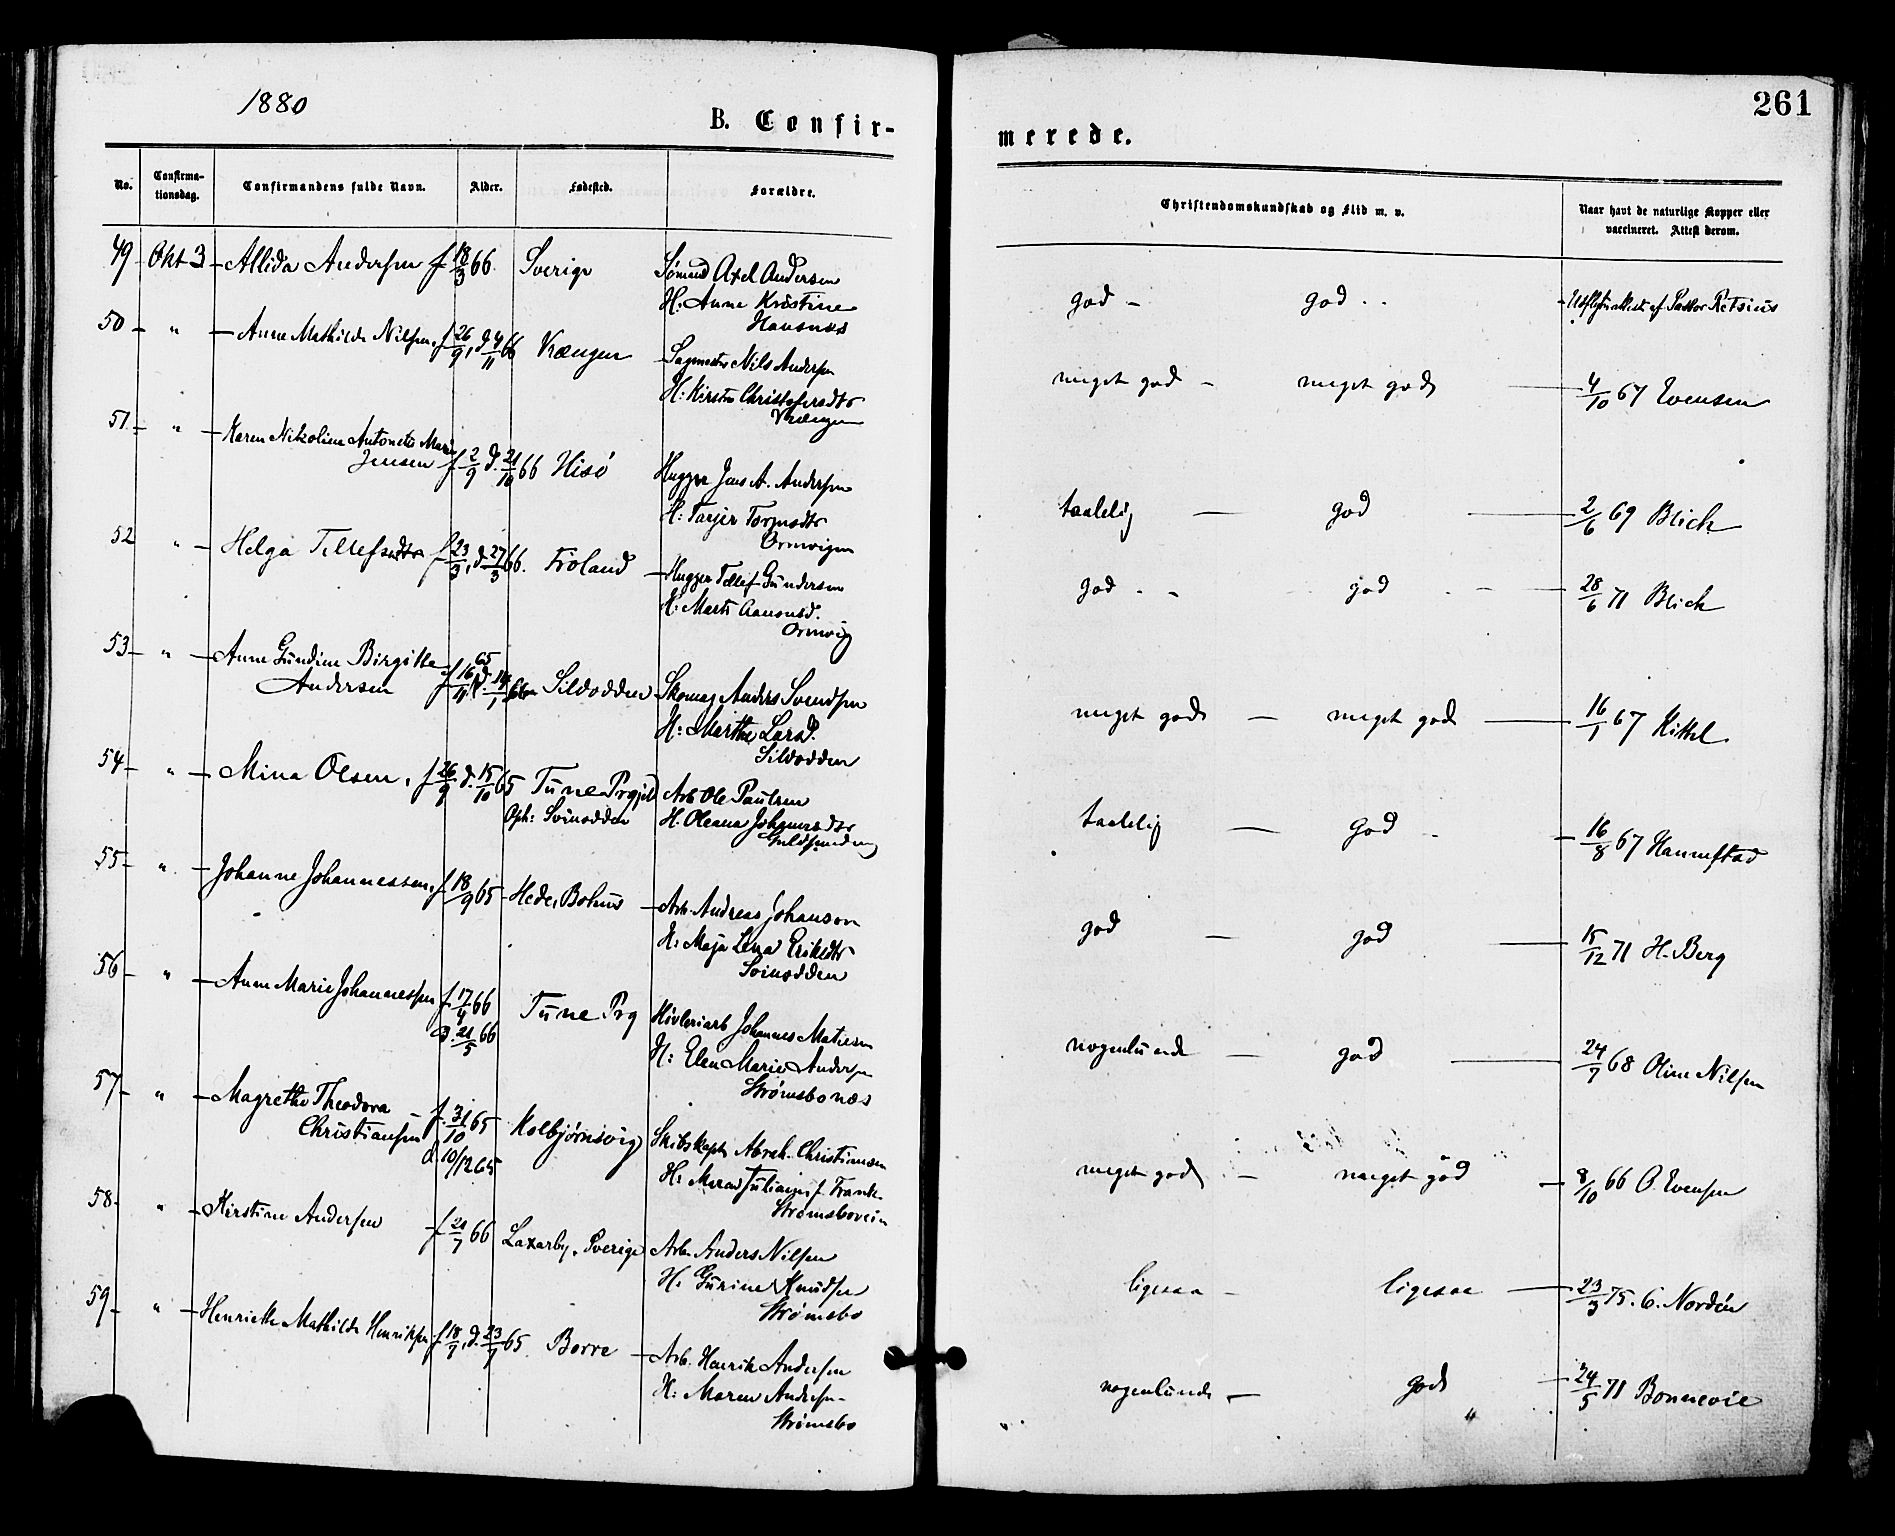 1880
B. Confir-
No.
Confirma-
tionsdag.
Confirmandens fulde Navn.
Alder.
Fødested.
Forældre.
49 Okt 3 Allida Andersen f 18/3 66. Sverige Sømand Axel Andersen
H: Anne Kristine
Hansnæs
50 " Anne Mathilde Nilsen, f 26/9, d 4/11 66 Vrængen Sagmester Nils Andersen
H: Kirsten Christofersdtr
Vrængen
51 " Karen Nikoline Antonette Marie
Jensen f 2/9 d. 21/10 66 Hisö Hugger Jens A. Andersen
H: Tarjer Tormodtr
Ormvigen
52 " Helga Tellefsdtr f 23/3, d. 27/3 66. Froland Hugger Tellef Gundersen
H: Marte Aanonsd.
Ormvig
53 " Anne Gundine Birgitte
Andersen f 16/11 65 d. 14/1 66 Sildodden Skomag Anders Svendsen
H: Marthe Larsd.
Sildodden
54 " Mina Olsen, f 26/9 d. 15/10 65 Tune Prgjd Arb Ole Paulsen
Oph: Svinodden H. Oleana Johannesdtr
Guldsmedeng
55 " Johanne Johannessen, f 18/9 65 Hede, Bohus Arb. Andreas Johanson
H: Maja Lena Eriksdtr
Svinodden
56 " Anne Marie Johannessen f 17/4 66 Tune Prg Høvleriarb Johannes Matiesen
d. 21/5 66 H: Elen Marie Andersen
Strømsbonæs
57 " Magrethe Theodora
Christiansen f. 31/10 65 Kolbjørnsvig Skibskapt Abrah. Christiansen
d 10/12 65 H: Maren Juliane f. Frank
Strømsboveien
58 " Kirstine Andersen f 21/7 66 Laxarby, Sverige Arb. Anders Nilsen
H: Gurine Knudsen
Strømsbo
59 " Henriette Mathilde Henriksen f 18/7, d. 23/7 65 Borre Arb. Henrik Andersen
H: Maren Andersen
Strømsbo
261
merede.
Christendomskundskab og Flid m. v.
Naar havt de naturlige Kopper eller
vaccineret. Attest derom.
god – god Udflytn.attest af Pastor Retsius
meget god – meget god 4/10 67 Evensen
taalelig – god 2/6 69 Blich
god god 28/6 71 Blich
meget god – meget god 16/1 67 Kittel
taalelig – god 16/8 67 Hannestad
god – god 15/12 71 H. Berg
nogenlunde – god 24/7 68 Oline Nilsen
meget god – meget god 8/10 66 O. Evensen
ligesaa – ligesaa 23/3 75. C. Nordén
nogenlunde – god 24/5 71 Bonnevie